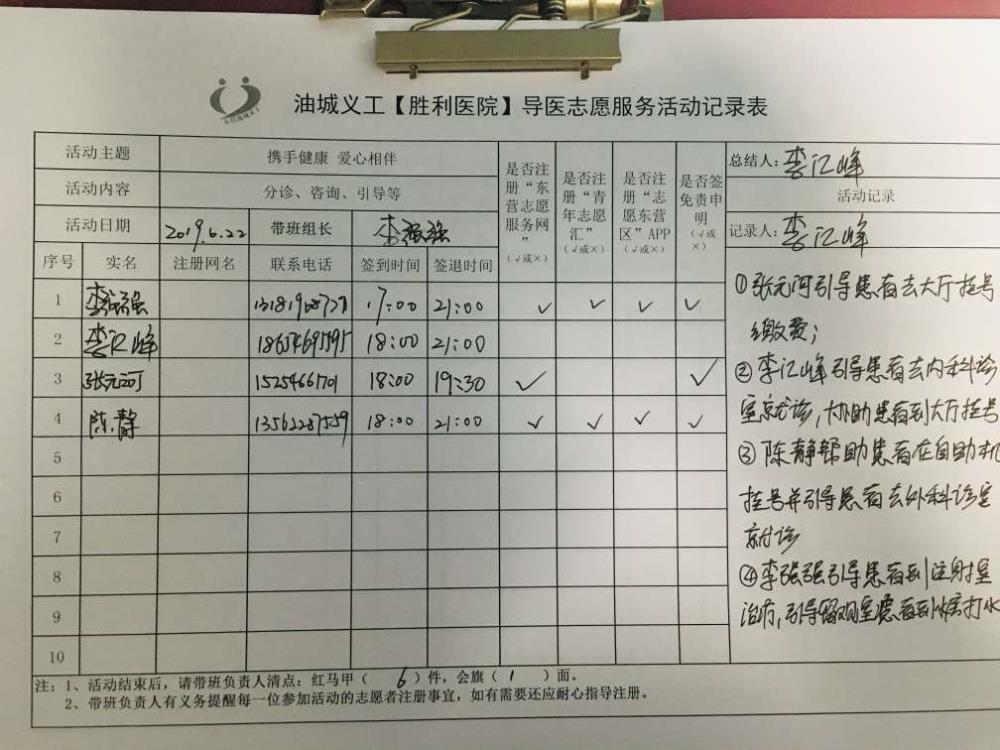 油城义工【胜利医院】导医志愿服务活动记录表
活动主题 携手健康 爱心相伴
活动内容 分诊、咨询、引导等
活动日期 2019.6.22 带班组长 李强强
是否注册“东营志愿服务网”(√或×)
是否注册“青年志愿汇”(√或×)
是否注册“志愿东营区”APP(√或×)
是否签免责申明(√或×)
序号 实名 注册网名 联系电话 签到时间 签退时间
1 李强强 17:00 21:00 √ √ √ √
2 李江峰 18:00 21:00
3 张元河 18:00 19:30 √ √
4 陈静 13562287559 18:00 21:00 √ √ √ √
5
6
7
8
9
10
总结人：李江峰
活动记录
记录人：李江峰
①张元河引导患者去大厅挂号
缴费；
②李江峰引导患者去内科诊
室就诊，协助患者到大厅挂号
③陈静帮助患者在自助机
挂号并引导患者去外科诊室
就诊
④李强强引导患者到注射室
治疗，引导留观室患者到打水
注：1、活动结束后，请带班负责人清点：红马甲（6）件，会旗（1）面。
2、带班负责人有义务提醒每一位参加活动的志愿者注册事宜，如有需要还应耐心指导注册。